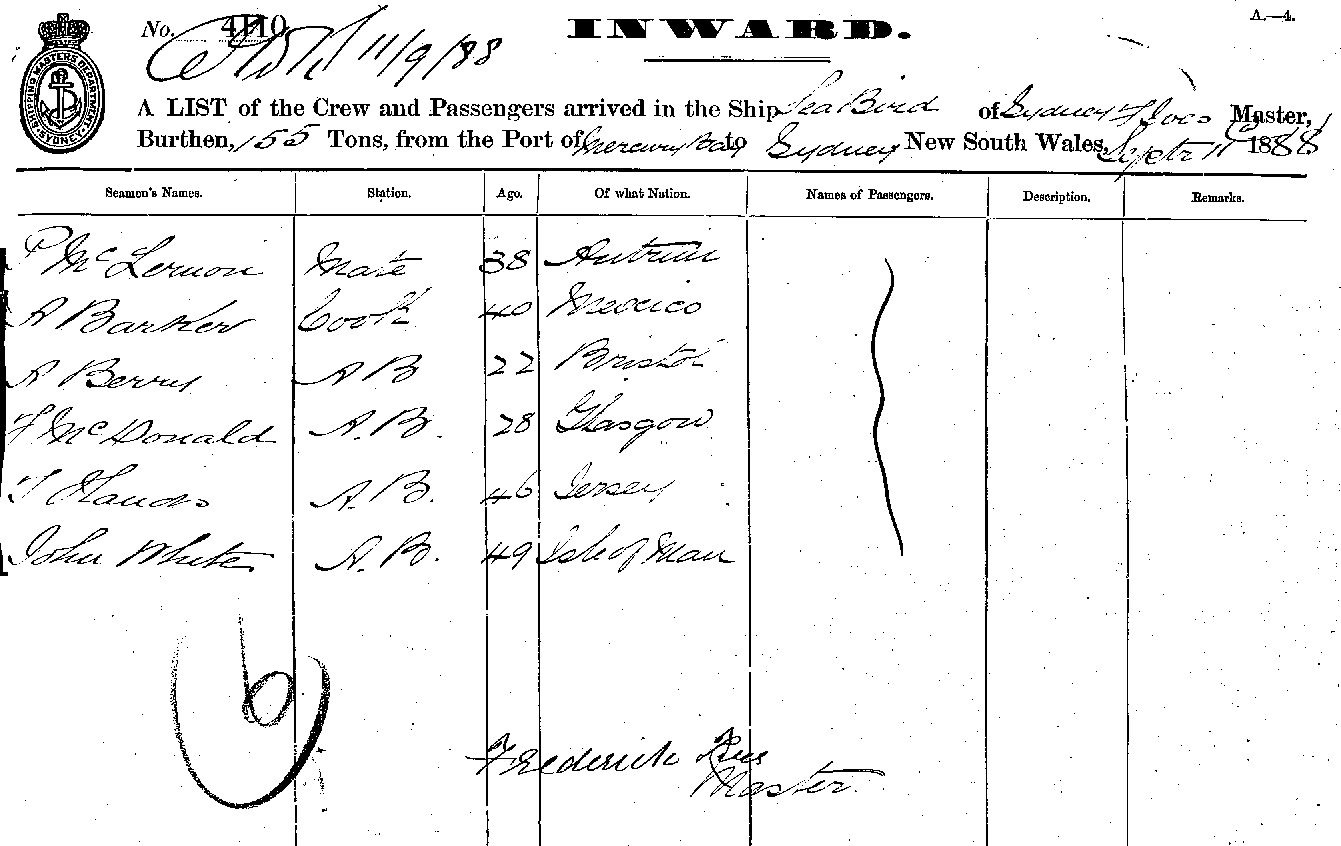 A.—4.
No. 4110 INWARD.
11/9/88
SHIPPING MASTERS DEPARTMENT SYDNEY
A LIST of the Crew and Passengers arrived in the Ship Sea Bird of Sydney Master,
Burthen, 155 Tons, from the Port of Mercury Bay to Sydney New South Wales, Septr 11 1888
Seamen's Names. Station. Age. Of what Nation. Names of Passengers. Description. Remarks.
P McLernon Mate 38 Antrim
A Barker Cook 40 Mexico
A Berry A B 22 Bristol
F McDonald A.B. 28 Glasgow
A.B. 46 Jersey
John White A.B. 49 Isle of Man
6
Frederick
Master